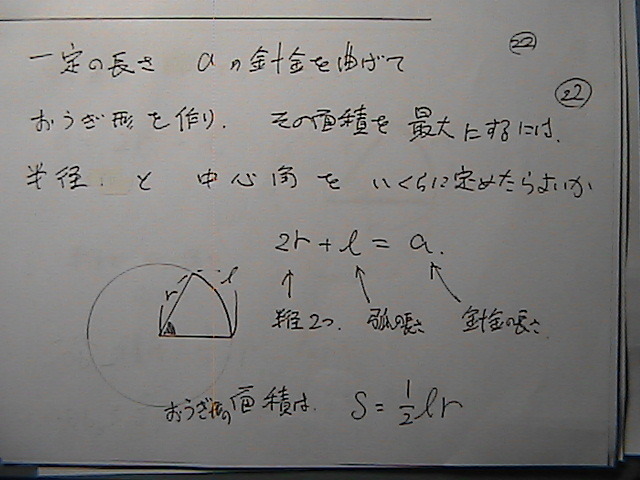 22
一定の長さ aの針金を曲げて
22
おうぎ形を作り. その面積を最大にするには.
半径 と 中心角を いくらに定めたらよいか
2r+l=a.
r l
半径2つ. 弧の長さ 針金の長さ.
おうぎ形の面積は. S=1/2lr